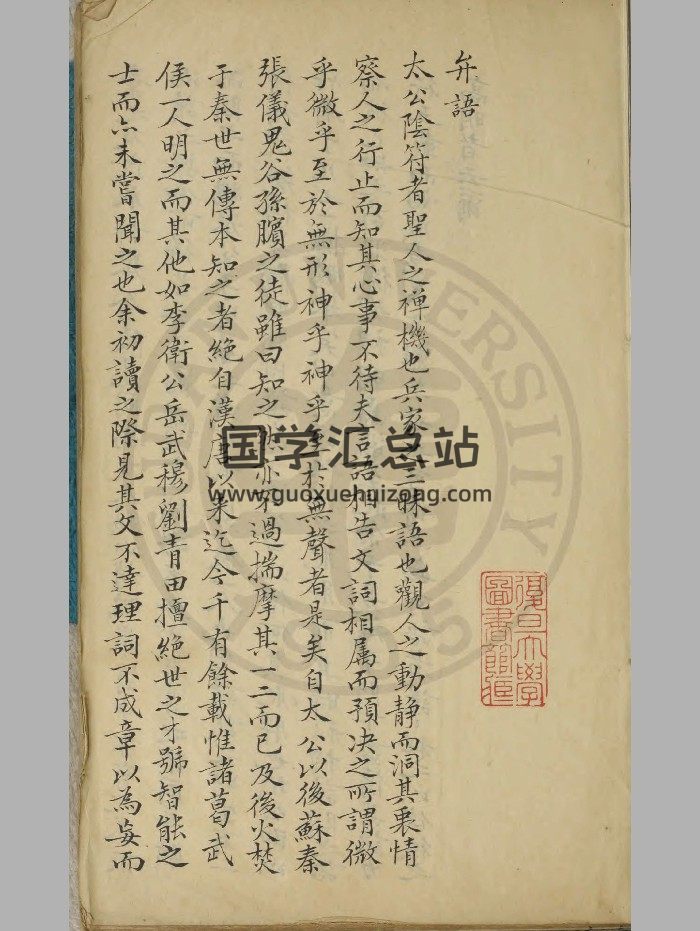 弁語
太公陰符者聖人之禅機也兵家之三昧語也觀人之動静而洞其衷情
察人之行止而知其心事不待夫言語相告文詞相属而預决之所謂微
乎微乎至於無形神乎神乎至於無聲者是矣自太公以後蘇秦
張儀鬼谷孫臏之徒雖曰知之然亦不過揣摩其一二而已及後火焚
于秦世無傳本知之者絶自漢唐以来迄今千有餘載惟諸葛武
侯一人明之而其他如李衛公岳武穆劉青田擅絶世之才號智能之
士而亦未嘗聞之也余初讀之際見其文不達理詞不成章以為妄而
復旦大學
圖書館
国学汇总站
www.guoxuehuizong.com